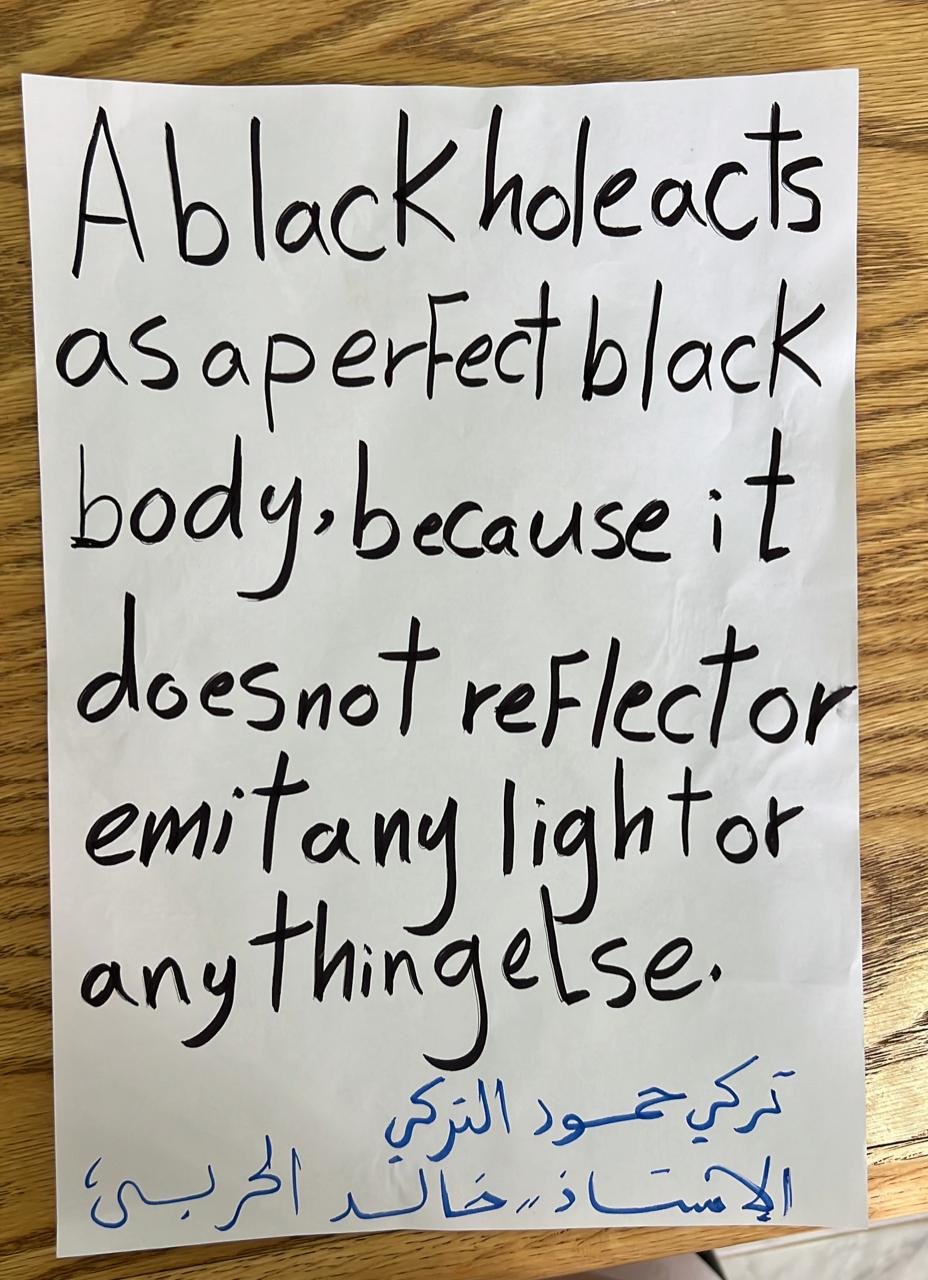 A black hole acts
as a perfect black
body, because it
does not reflect or
emit any light or
anything else.
تركي حمود التركي
الاستاذ،، خالد الحربي،